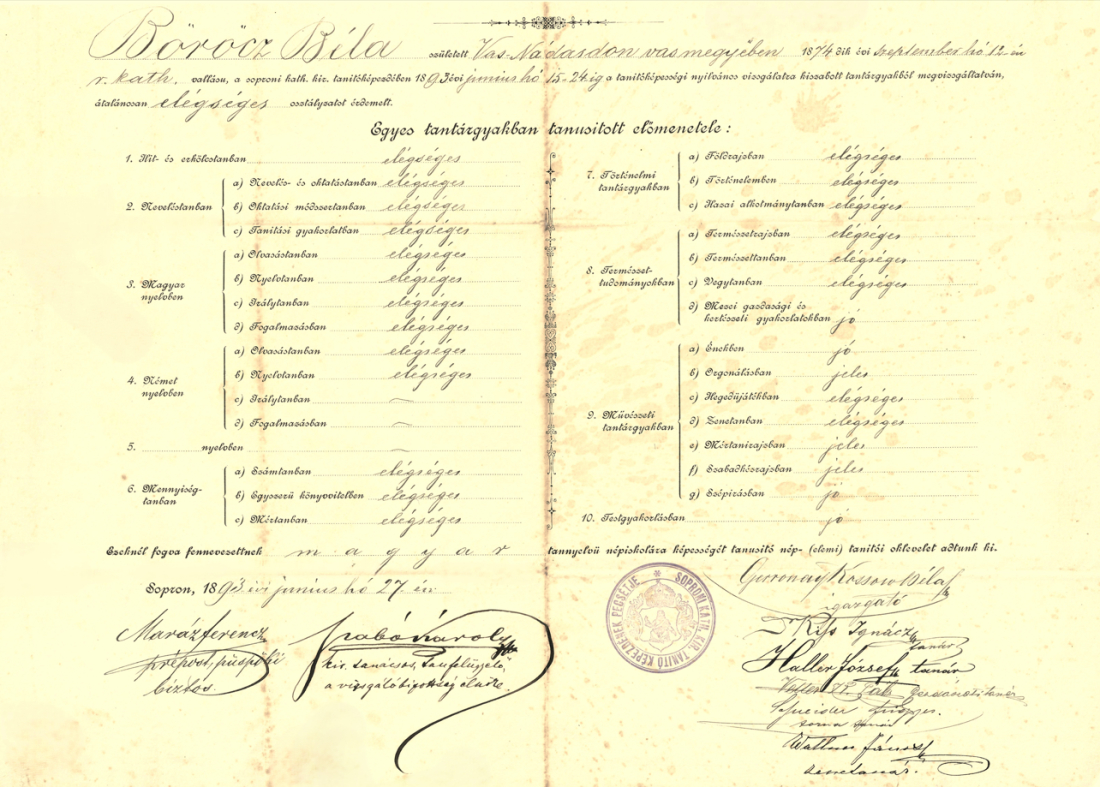 Böröcz Béla született Vas-Nádasdon vasmegyében 1874 dik évi szeptember hó 12-én
r. kath. vallásu, a soproni kath. kir. tanitóképezdében 1893 évi junius hó 15-24. ig a tanitóképességi nyilvános vizsgálatra kiszabott tantárgyakból megvizsgáltatván,
átalánosan elégséges osztályzatot érdemelt.
Egyes tantárgyakban tanusitott előmenetele:
1. Hit- és erkölcstanban elégséges
2. Neveléstanban
a) Nevelés- és oktatástanban elégséges
b) Oktatási módszertanban elégséges
c) Tanitási gyakorlatban elégséges
3. Magyar nyelvben
a) Olvasástanban elégséges
b) Nyelvtanban elégséges
c) Irálytanban elégséges
d) Fogalmazásban elégséges
4. Német nyelvben
a) Olvasástanban elégséges
b) Nyelvtanban elégséges
c) Irálytanban —
d) Fogalmazásban —
5. nyelvben —
6. Mennyiség-tanban
a) Számtanban elégséges
b) Egyszerű könyvvitelben elégséges
c) Mértanban elégséges
7. Történelmi tantárgyakban
a) Földrajzban elégséges
b) Történelemben elégséges
c) Hazai alkotmánytanban elégséges
8. Természet-tudományokban
a) Természetrajzban elégséges
b) Természettanban elégséges
c) Vegytanban elégséges
d) Mezei gazdasági és
kertészeti gyakorlatokban jó
9. Művészeti tantárgyakban
a) Énekben jó
b) Orgonálásban jeles
c) Hegedüjátékban elégséges
d) Zenetanban elégséges
e) Mértanirajzban jeles
f) Szabadkézrajzban jeles
g) Szépirásban jó
10. Testgyakorlásban jó
Ezeknél fogva fennevezettnek magyar tannyelvü népiskolára képességét tanusitó nép- (elemi) tanitói oklevelet adtunk ki.
Sopron, 1893. évi junius hó 27. én
SOPRONI KATH. KIR. TANITÓ KÉPEZDÉNEK PECSÉTJE
Maráz Ferencz
prépost, püspöki
biztos.
Szabó Károly
kir. tanácsos, tanfelügyelő
a vizsgálóbizottság elnöke.
Kossow Béla
igazgató
Dr Kiss Ignácz
tanár
Haller József tanár
Schneider
Wallner János
zenetanár.